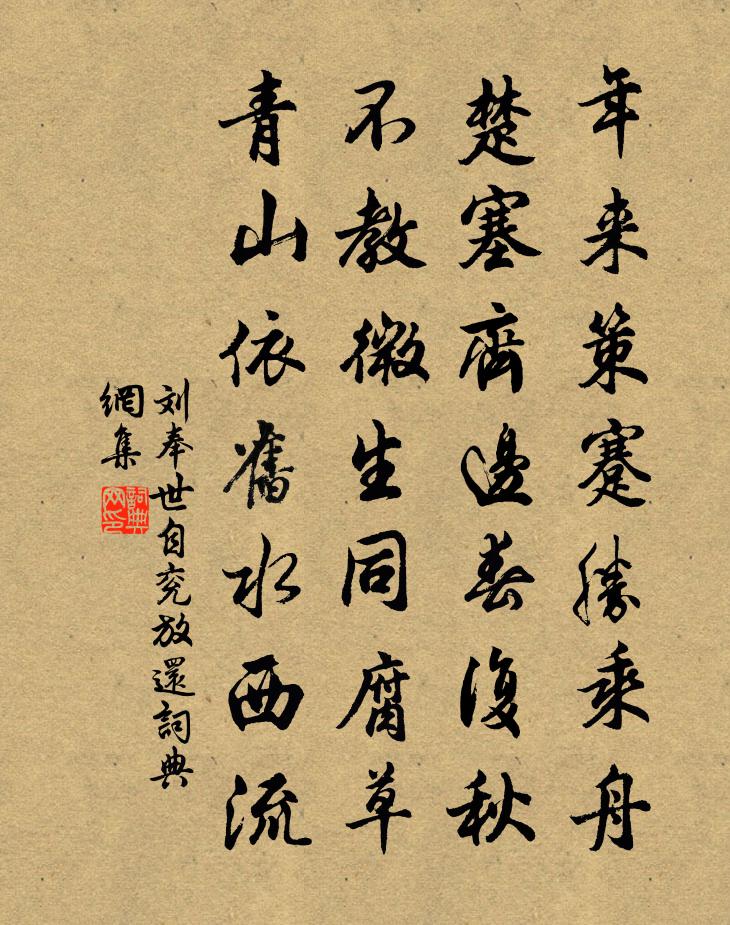 年来策蹇勝乘舟
楚塞齊邊春復秋
不教微生同腐草
青山依舊水西流
刘奉世自兖放還詞典
網集
詞典
网印